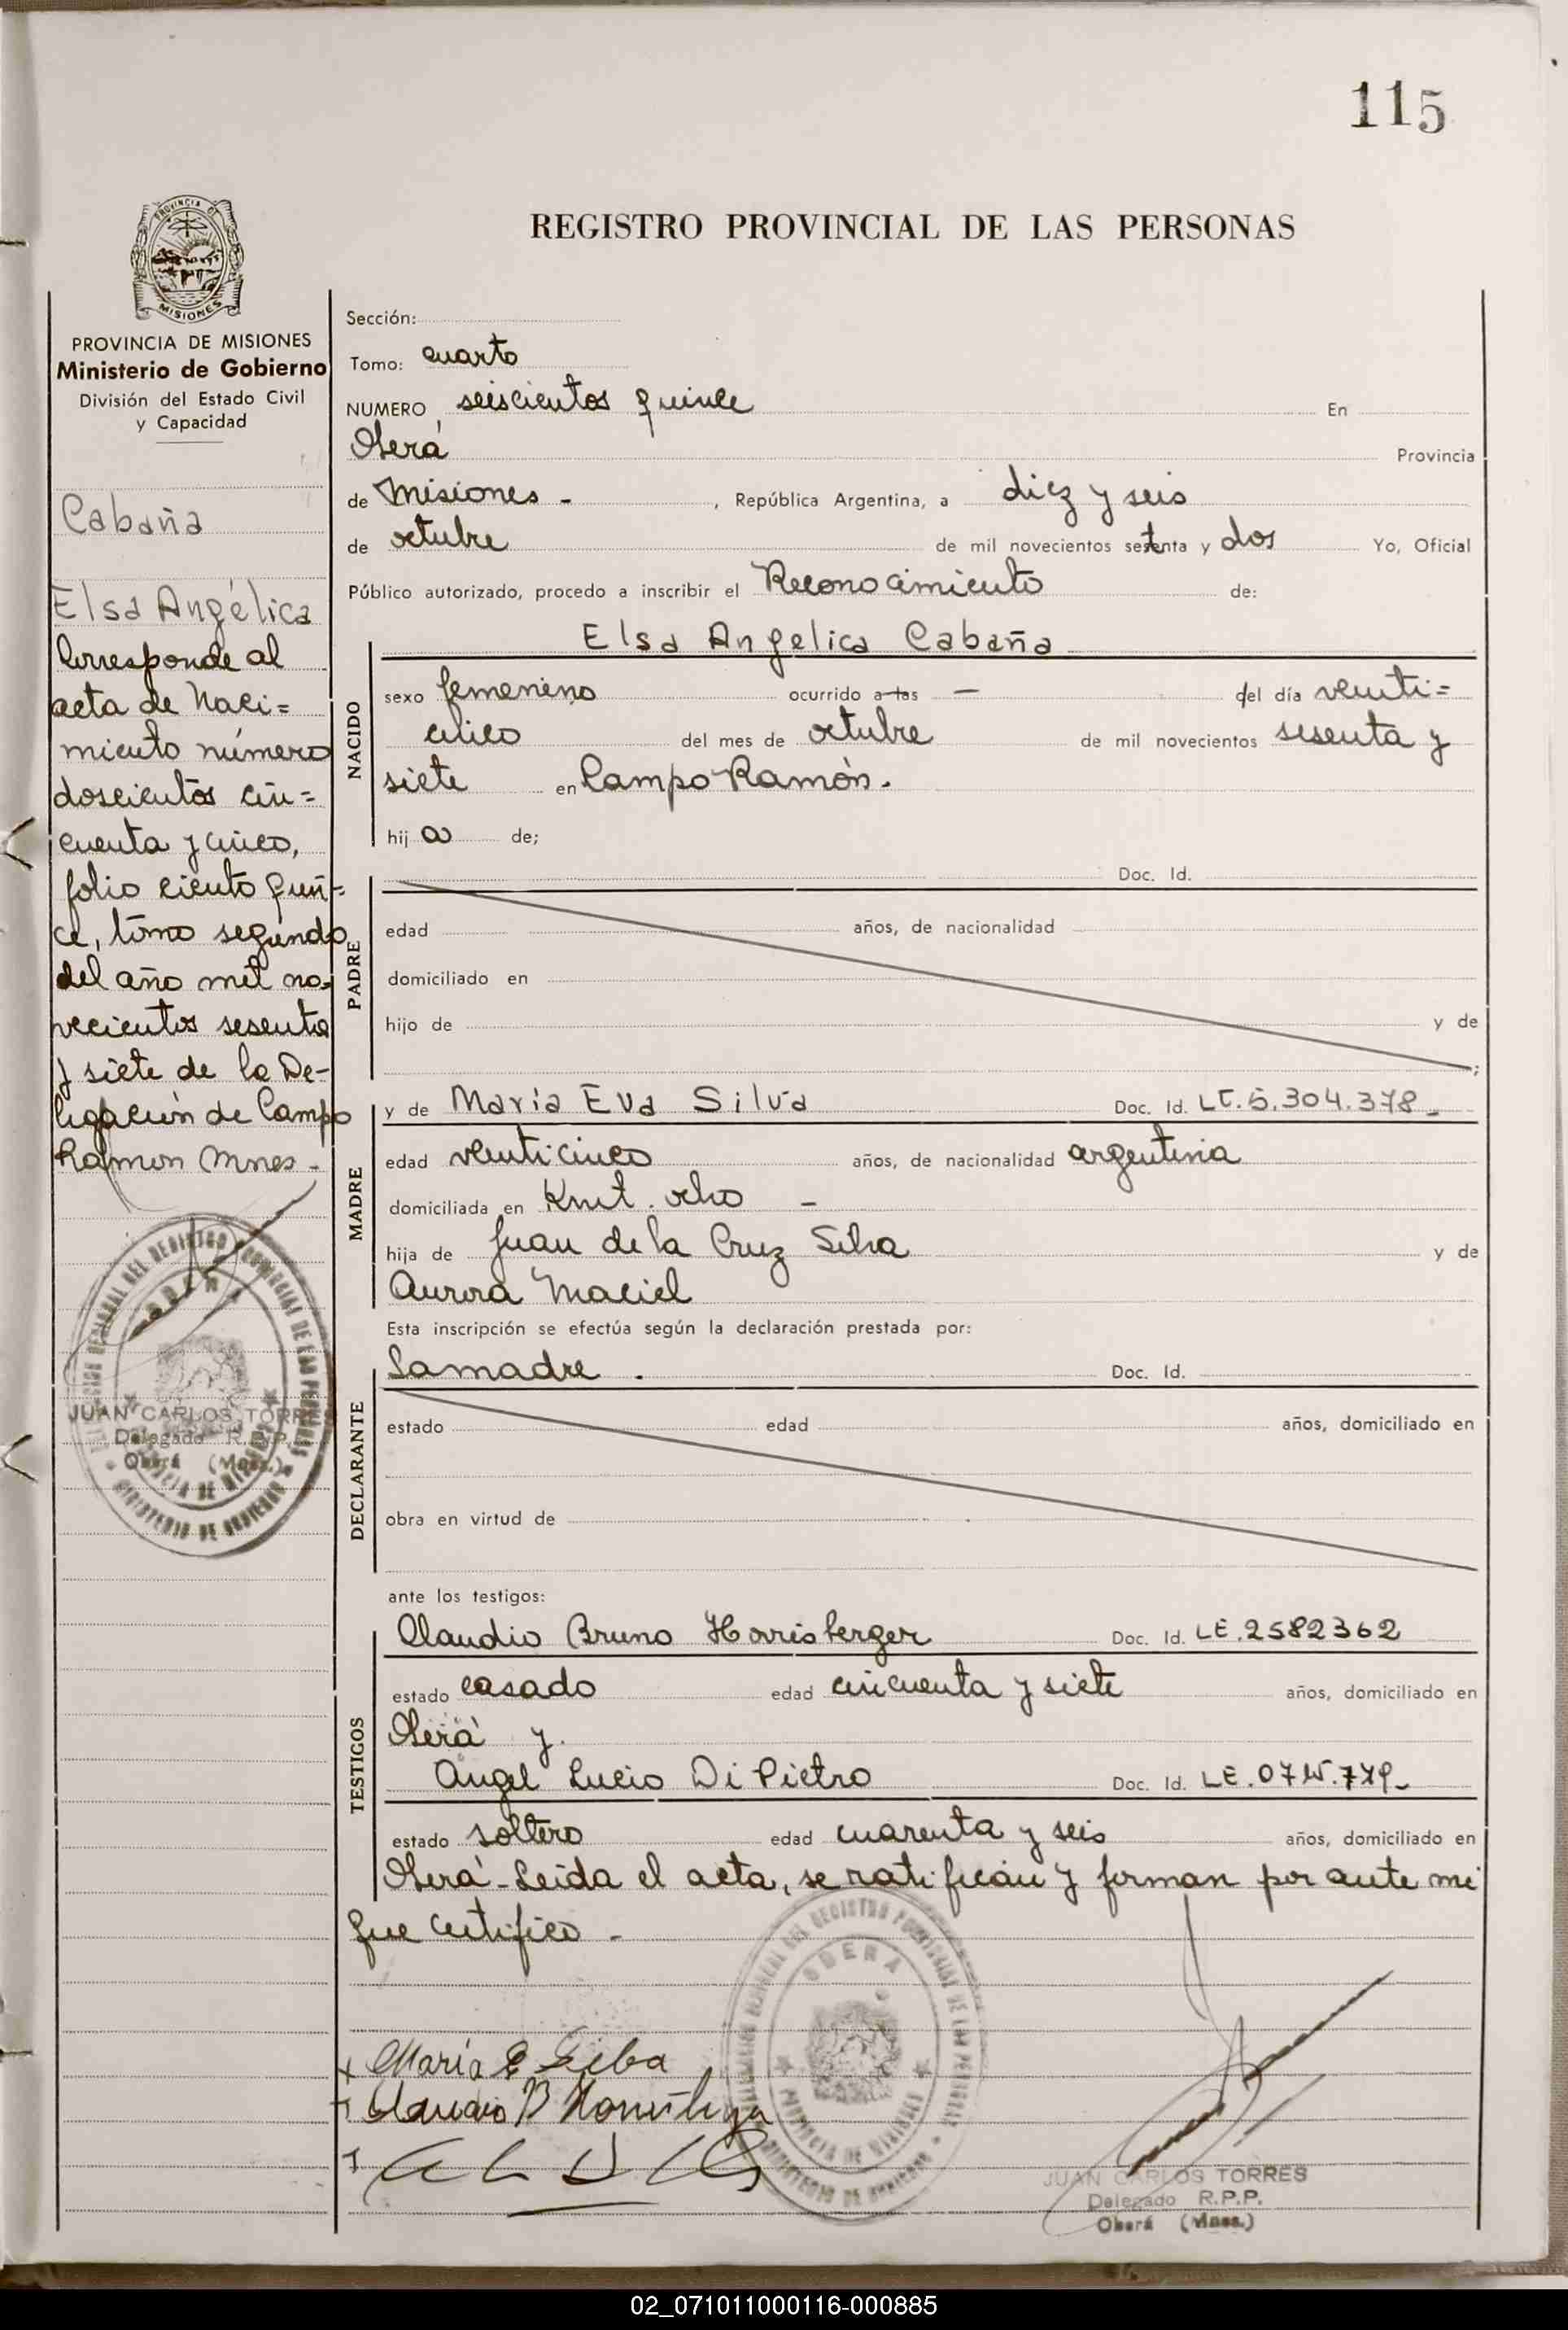 115
PROVINCIA DE
MISIONES
REGISTRO PROVINCIAL DE LAS PERSONAS
PROVINCIA DE MISIONES
Ministerio de Gobierno
División del Estado Civil
y Capacidad
Cabaña
Elsa Angélica
Corresponde al
acta de Naci=
miento número
doscientos cin=
cuenta y cinco,
folio ciento quin=
ce, tomo segundo
del año mil no=
vecientos sesenta
y siete de la De-
legación de Campo
Ramon Mnes-
JUAN CARLOS TORRES
Delegado R.P.P.
Oberá (Mnes.)
Sección:
Tomo: cuarto
NUMERO seiscientos quince En
Oberá Provincia
de Misiones - , República Argentina, a diez y seis
de octubre de mil novecientos setenta y dos Yo, Oficial
Público autorizado, procedo a inscribir el Reconocimiento de:
NACIDO
Elsa Angelica Cabaña
sexo femenino ocurrido a las — del día veinti=
cinco del mes de octubre de mil novecientos sesenta y
siete en Campo Ramón.
hij a de;
PADRE
Doc. Id.
edad años, de nacionalidad
domiciliado en
hijo de y de
;
MADRE
y de María Eva Silva Doc. Id. LC.5.304.378-
edad venticinco años, de nacionalidad argentina
domiciliada en Kmt. ocho -
hija de Juan de la Cruz Silva y de
Aurora Maciel
Esta inscripción se efectúa según la declaración prestada por:
DECLARANTE
La madre . Doc. Id.
estado edad años, domiciliado en
obra en virtud de
ante los testigos:
TESTIGOS
Claudio Bruno Horrisberger Doc. Id. LE.2582362
estado casado edad cincuenta y siete años, domiciliado en
Oberá y.
Angel Lucio Di Pietro Doc. Id. LE.
estado soltero edad cuarenta y seis años, domiciliado en
Oberá - Leida el acta, se ratifican y firman por ante mi
que certifico -
OBERA
María E Silba
Claudio B
JUAN CARLOS TORRES
Delegado R.P.P.
Oberá (Mnes.)
02_071011000116-000885